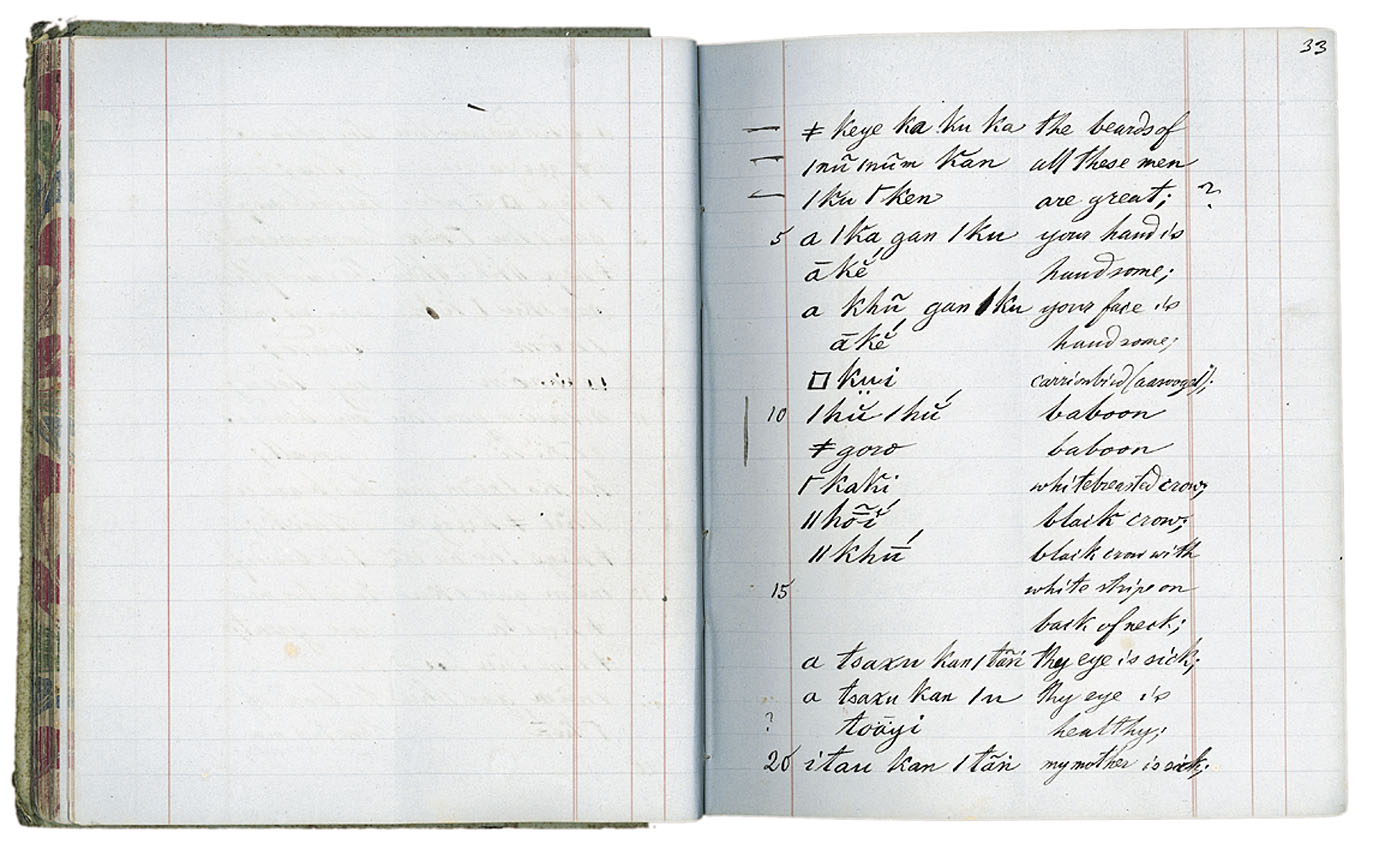 33
ǂ keye ka ku ka the beards of
/nũ /nũm k̆an all these men
/ku ⌈ken are great; ?
5 a /ka gan /ku your hand is
ākĕ́ handsome;
a khũ gan /ku your face is
ākĕ́ handsome;
□ kṳi carrionbird (aasvogel);
10 /hŭ /hŭ́ baboon
ǂ goro baboon
⌈ kaki whitebreasted crow;
//hõĭ́ black crow;
//khū́ black crow with
15 white stripe on
back of neck;
a tsaxu kan /tā̃i thy eye is sick;
a tsaxu kan /u thy eye is
? toāyi healthy;
20 itau kan /tā̃i my mother is sick;